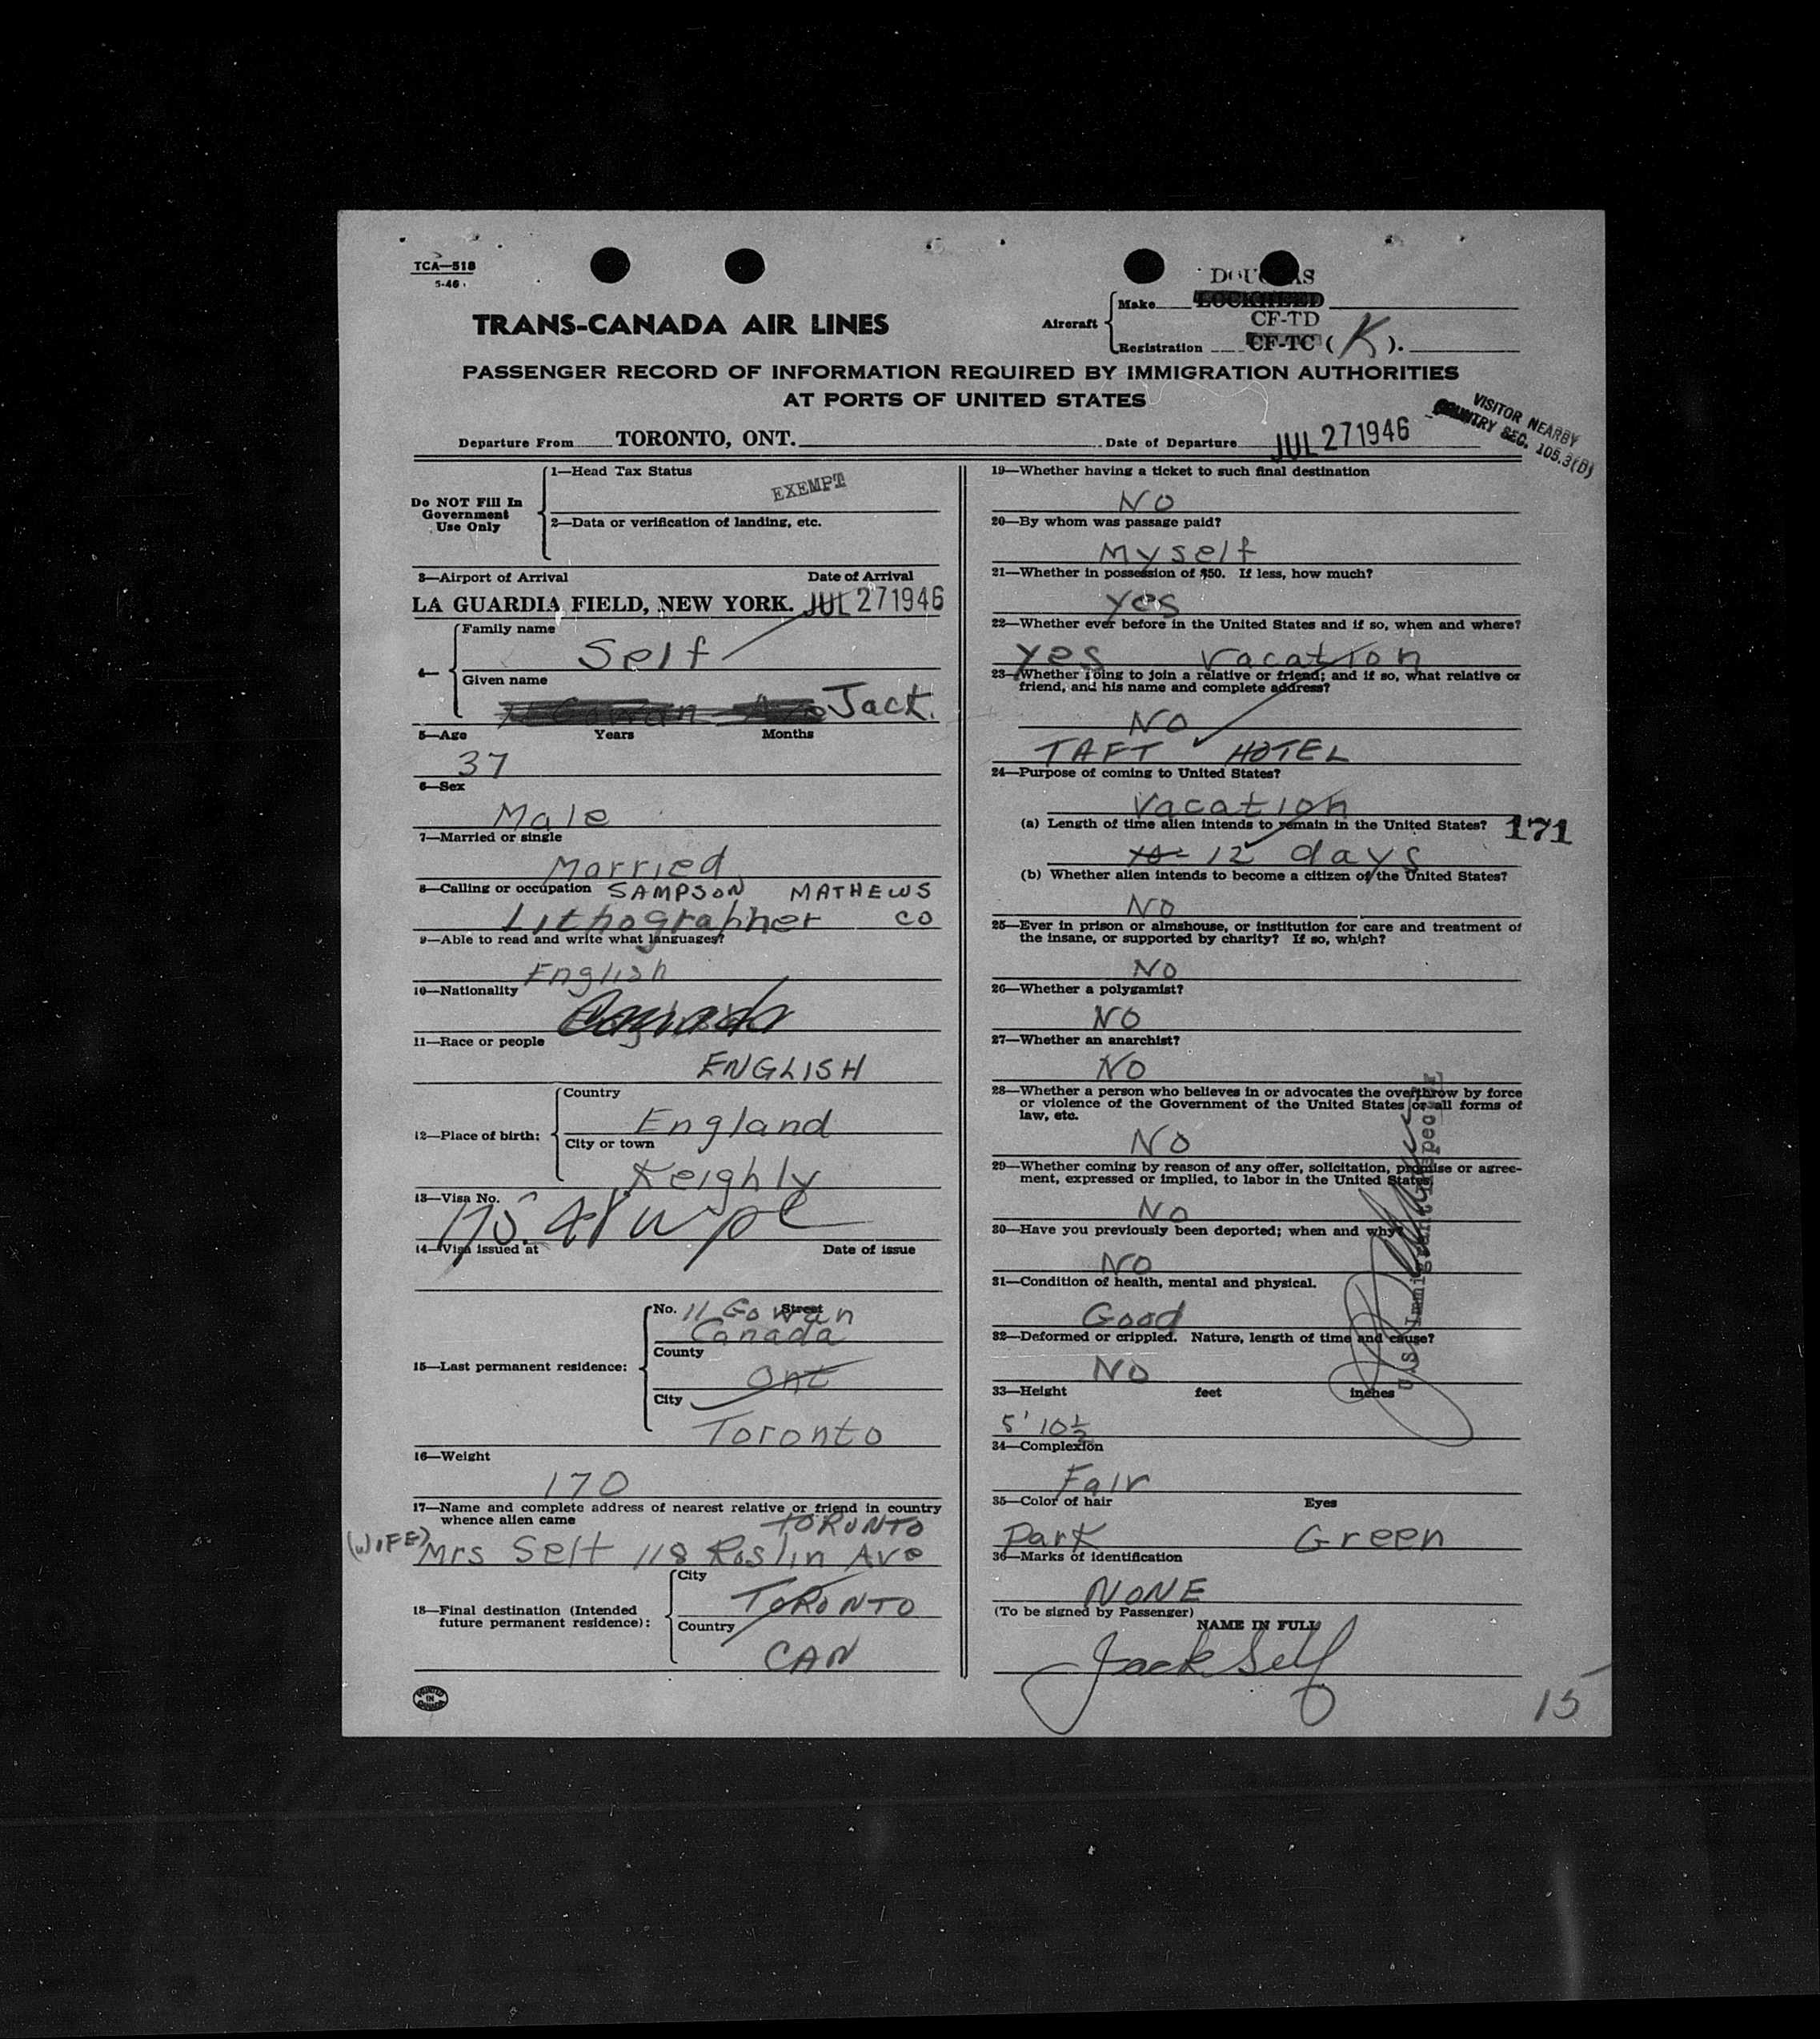 TCA—518
5-46
DOUGLAS
Make LOCKHEED
TRANS-CANADA AIR LINES
Aircraft
CF-TD
Registration CF-TC ( K ).
PASSENGER RECORD OF INFORMATION REQUIRED BY IMMIGRATION AUTHORITIES
AT PORTS OF UNITED STATES
VISITOR NEARBY
COUNTRY SEC. 105.3(B)
Departure From TORONTO, ONT. Date of Departure JUL 27 1946
Do NOT Fill In
Government
Use Only
1—Head Tax Status
EXEMPT
2—Data or verification of landing, etc.
3—Airport of Arrival Date of Arrival
LA GUARDIA FIELD, NEW YORK. JUL 27 1946
4—
Family name
Self
Given name
Jack.
5—Age Years Months
37
6—Sex
Male
7—Married or single
Married
8—Calling or occupation SAMPSON MATHEWS
Lithographer CO
9—Able to read and write what languages?
English
10—Nationality
11—Race or people
ENGLISH
12—Place of birth:
Country
England
City or town
Keighly
13—Visa No.
14—Visa issued at Date of issue
15—Last permanent residence:
No. 11 Gowan Street
Canada
County
Ont
City
Toronto
16—Weight
170
17—Name and complete address of nearest relative or friend in country
whence alien came
TORONTO
(WIFE) Mrs Self 118 Roslin Ave
18—Final destination (Intended
future permanent residence):
City
TORONTO
Country
CAN
PRINTED
IN
CANADA
19—Whether having a ticket to such final destination
NO
20—By whom was passage paid?
Myself
21—Whether in possession of $50. If less, how much?
yes
22—Whether ever before in the United States and if so, when and where?
yes vacation
23—Whether going to join a relative or friend; and if so, what relative or
friend, and his name and complete address?
NO
TAFT HOTEL
24—Purpose of coming to United States?
Vacation
(a) Length of time alien intends to remain in the United States? 171
12 days
(b) Whether alien intends to become a citizen of the United States?
NO
25—Ever in prison or almshouse, or institution for care and treatment of
the insane, or supported by charity? If so, which?
NO
26—Whether a polygamist?
NO
27—Whether an anarchist?
NO
28—Whether a person who believes in or advocates the overthrow by force
or violence of the Government of the United States or all forms of
law, etc.
NO
29—Whether coming by reason of any offer, solicitation, promise or agree-
ment, expressed or implied, to labor in the United States,
No
30—Have you previously been deported; when and why?
NO
31—Condition of health, mental and physical.
Good
32—Deformed or crippled. Nature, length of time and cause?
NO
U.S. Immigrant Inspector
33—Height feet inches
5' 10½
34—Complexion
Fair
35—Color of hair Eyes
Dark Green
36—Marks of identification
NONE
(To be signed by Passenger)
NAME IN FULL
Jack Self
15